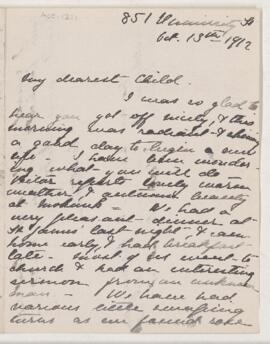 851
Oct. 13th 1912
My dearest Child.
I was so glad to
hear you got off nicely, & this
morning was radiant &
a good day to begin a new
life - I have been wonder
ing what you will do
reports lovely warm
weather & autumn beauty
at - We had a
very pleasant dinner at
St James' last night - & came
home early & had breakfast
late - most of us went to
church & had an interesting
sermon from an unknown
man - We have had
various little
turns as our